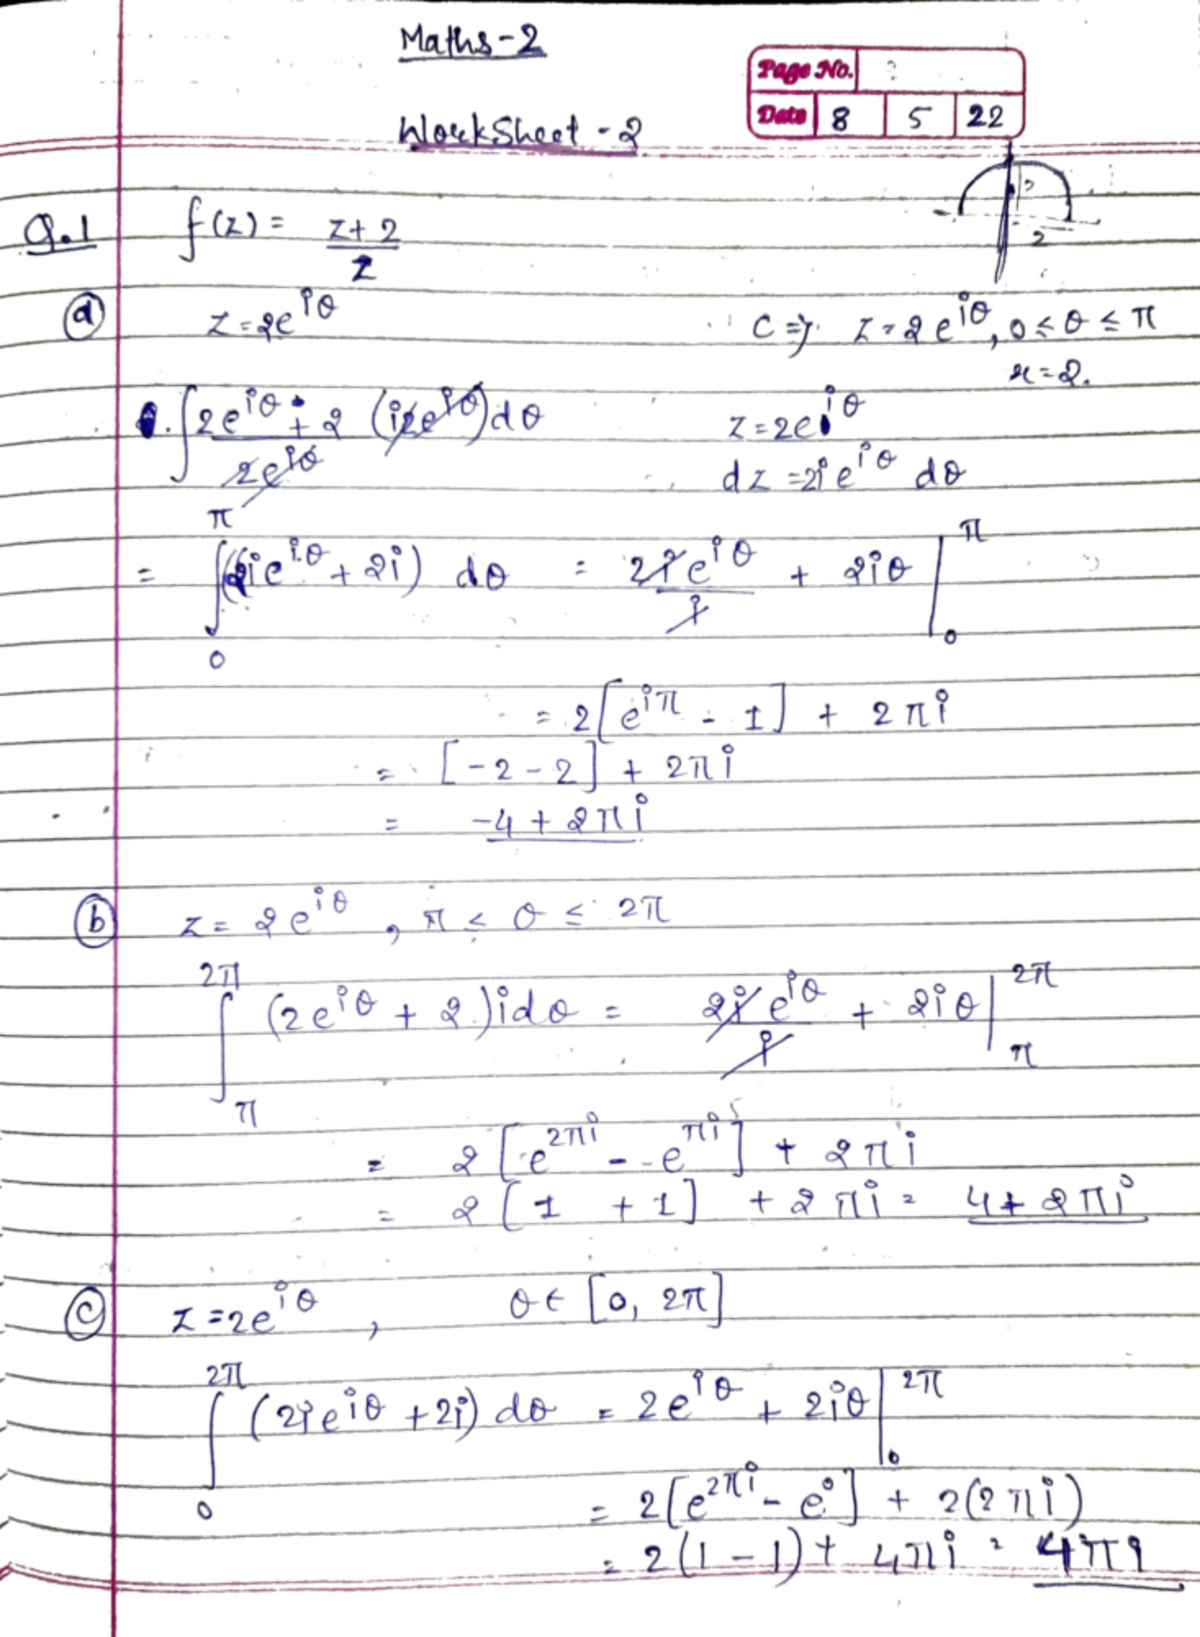 Maths-2
Page No. 2
Date 8 5 22
WorkSheet - 2
2
2
Q.1 f(z) = z+2 / z
(a) z=2e^{iθ} C ⇒ z=2e^{iθ}, 0≤θ≤π
r=2.
∫ 2e^{iθ}+2 / 2e^{iθ} (i2e^{iθ})dθ z=2e^{iθ}
dz=2ie^{iθ} dθ
= ∫_0^π (2ie^{iθ}+2i) dθ = 2ie^{iθ} / i + 2iθ |_0^π
= 2[e^{iπ} - 1] + 2πi
= [-2-2] + 2πi
= -4+2πi
(b) z= 2e^{iθ}, π ≤ θ ≤ 2π
∫_π^{2π} (2e^{iθ}+2)idθ = 2ie^{iθ} / i + 2iθ |_π^{2π}
= 2[e^{2πi} - e^{πi}] + 2πi
= 2[1 +1] +2πi = 4+2πi
(c) z=2e^{iθ}, θ∈ [0, 2π]
∫_0^{2π} (2ie^{iθ}+2i) dθ = 2e^{iθ} + 2iθ |_0^{2π}
= 2[e^{2πi} - e^0] + 2(2πi)
= 2(1-1)+ 4πi = 4πi